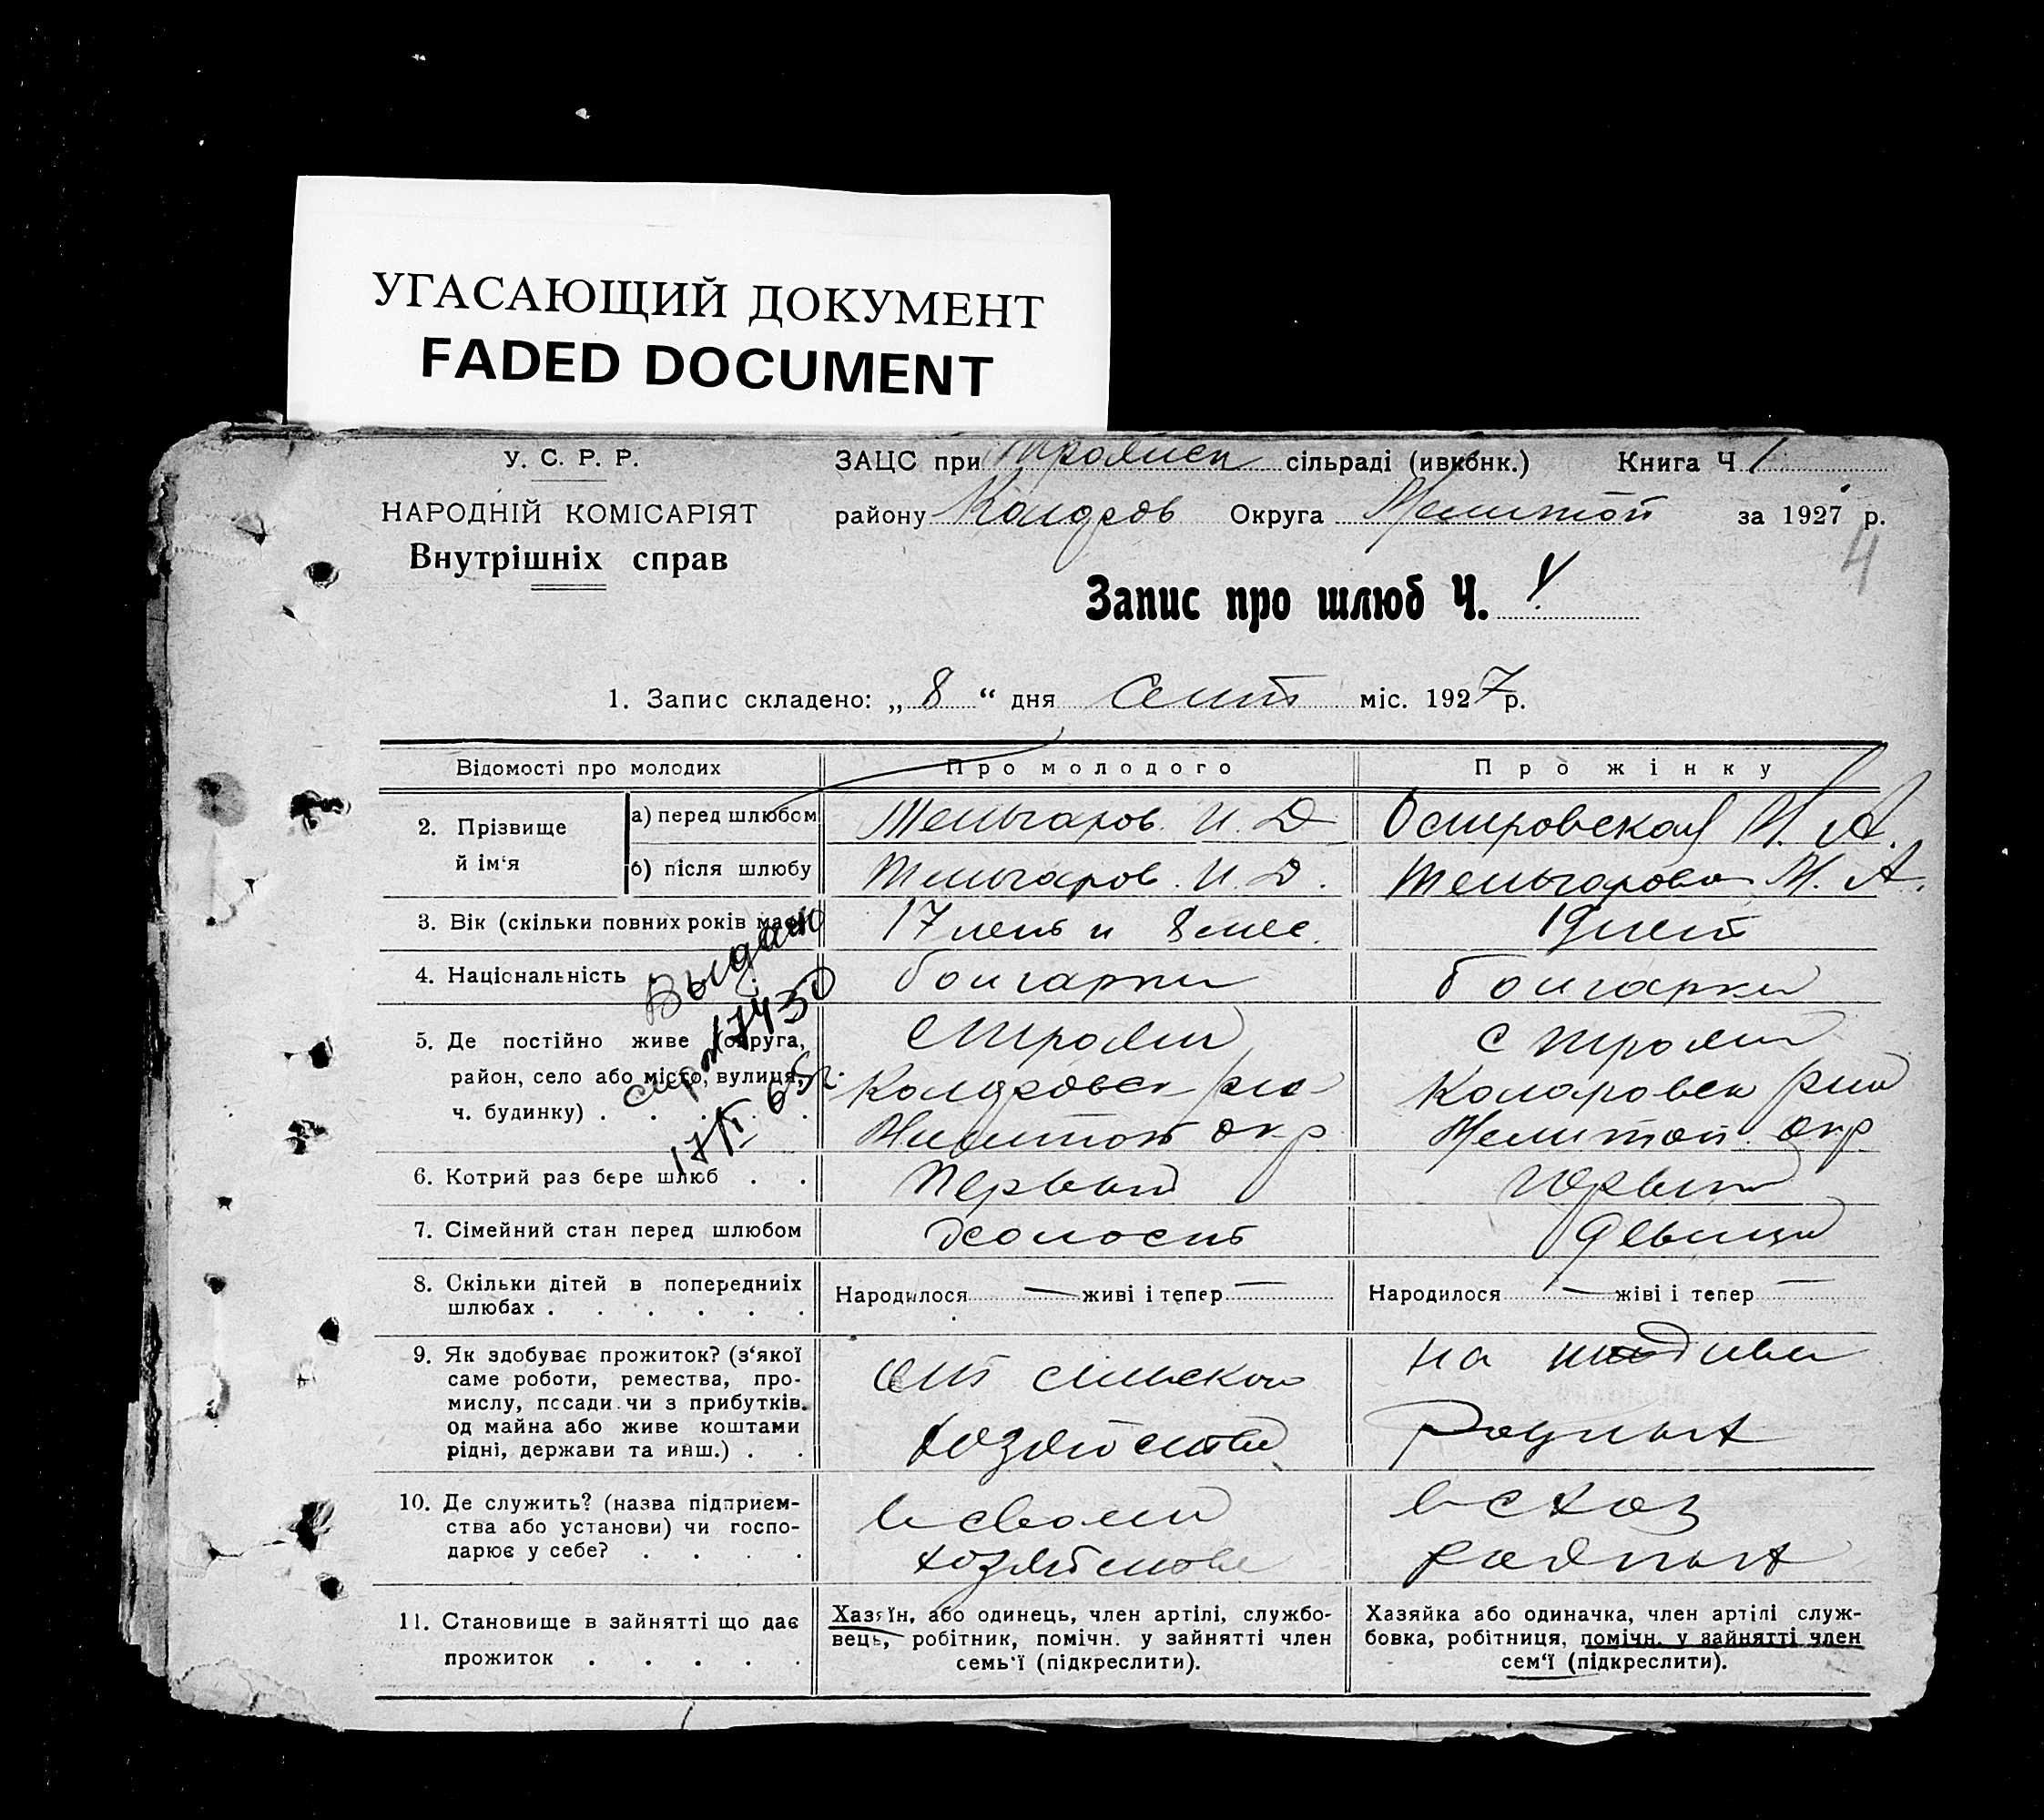 УГАСАЮЩИЙ ДОКУМЕНТ
FADED DOCUMENT
У. С. Р. Р.
НАРОДНІЙ КОМІСАРІЯТ
Внутрішніх справ
ЗАЦС при Троянск сільраді (ивкбнк.) Книга Ч 1
району Коларов Округа Мелитоп за 1927 р.
4
Запис про шлюб Ч.
1. Запис складено: „ 8 “ дня Сент міс. 1927 р.
Відомості про молодих Про молодого Про жінку
2. Прізвище й ім‘я
а) перед шлюбом Тельчаров И. Д Островская М. А.
б) після шлюбу Тельчаров И. Д. Тельчарова М. А.
3. Вік (скільки повних років має) 17 лет и 8 мес. 19 лет
4. Національність болгарин болгарка
5. Де постійно живе (округа, с Троян с Троян
район, село або місто, вулиця, Коларовск р-на Коларовск р-на
ч. будинку) . . . . . Мелитоп окр Мелитоп. окр
Выдано
17430
65г.
6. Котрий раз бере шлюб . . Первый Первый
7. Сімейний стан перед шлюбом холост девица
8. Скільки дітей в попередниіх Народилося — живі і тепер — Народилося — жіві і тепер —
шлюбах . . . . . .
9. Як здобуває прожиток? (з‘якої
саме роботи, ремества, про-
мислу, пссади чи з прибутків.
од майна або живе коштами
рідні, держави та инш.) . .
от сельского
хозяйства
на
родных
10. Де служить? (назва підприєм-
ства або установи) чи госпо-
дарює у себе? . . . .
в своем
хозяйстве
в с хоз
родных
11. Становище в зайнятті що дає
прожиток . . . . .
Хазяїн, або одинець, член артілі, службо-
вець, робітник, помічн. у зайнятті член
семь‘ї (підкреслити).
Хазяйка або одиначка, член артілі служ-
бовка, робітниця, помічн. у зайнятті член
сем‘ї (підкреслити).